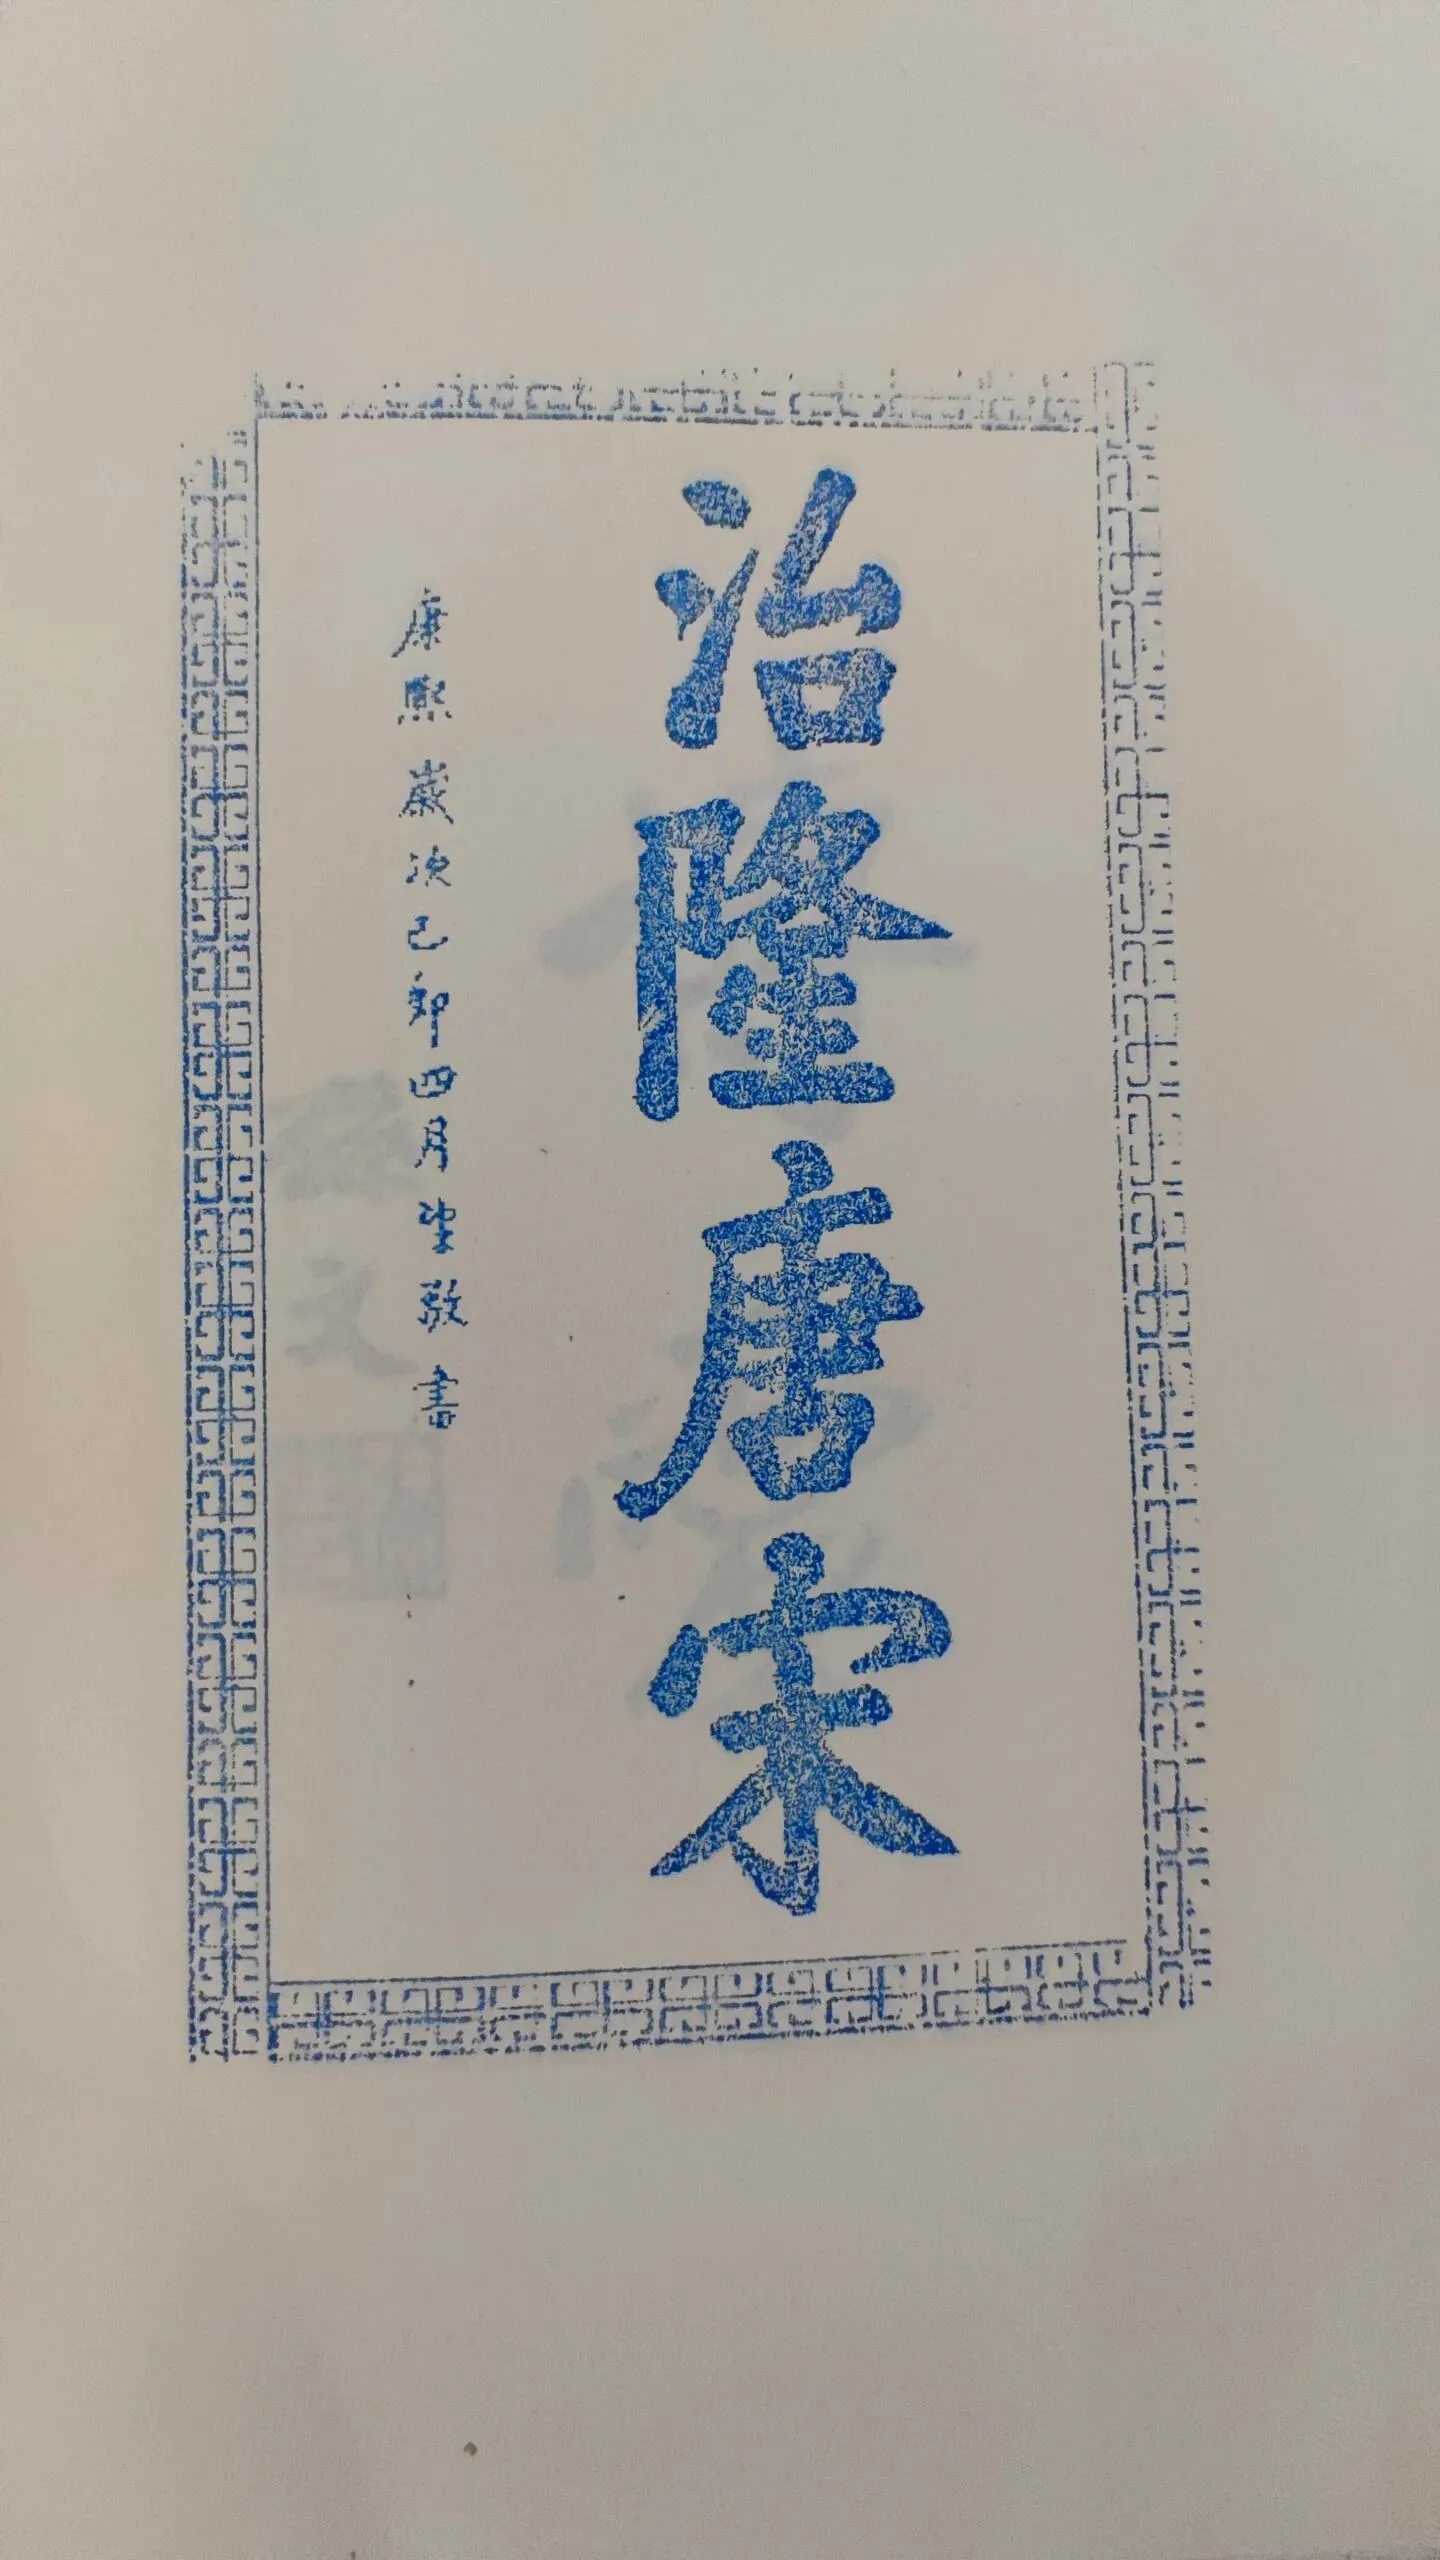 治隆唐宋
康熙歲次己卯四月宋敬書